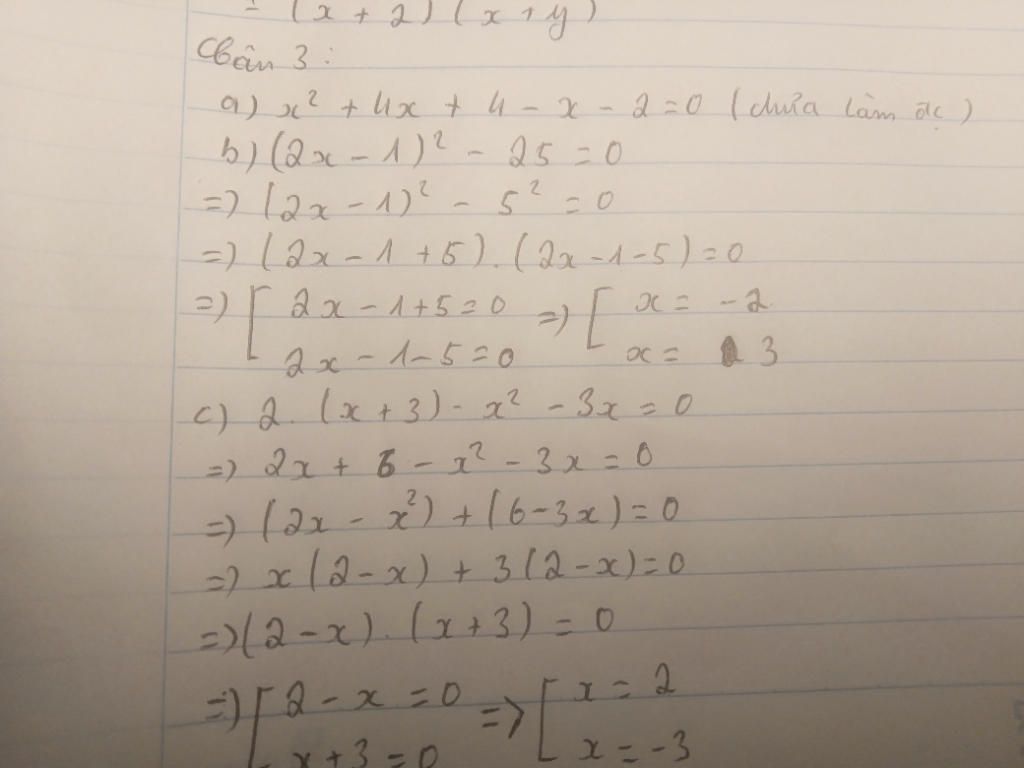 = (x + 2) (x + y)
Câu 3 :
a) x² + 4x + 4 - x - 2 = 0 (chưa làm đc)
b) (2x - 1)² - 25 = 0
=) (2x - 1)² - 5² = 0
=) (2x - 1 + 5) . (2x - 1 - 5) = 0
=) [ 2x - 1 + 5 = 0 =) [ x = -2
2x - 1 - 5 = 0 x = 3
c) 2. (x + 3) - x² - 3x = 0
=) 2x + 6 - x² - 3x = 0
=) (2x - x²) + (6 - 3x) = 0
=) x(2 - x) + 3(2 - x) = 0
=) (2 - x) . (x + 3) = 0
=) [ 2 - x = 0 => [ x = 2
x + 3 = 0 x = -3